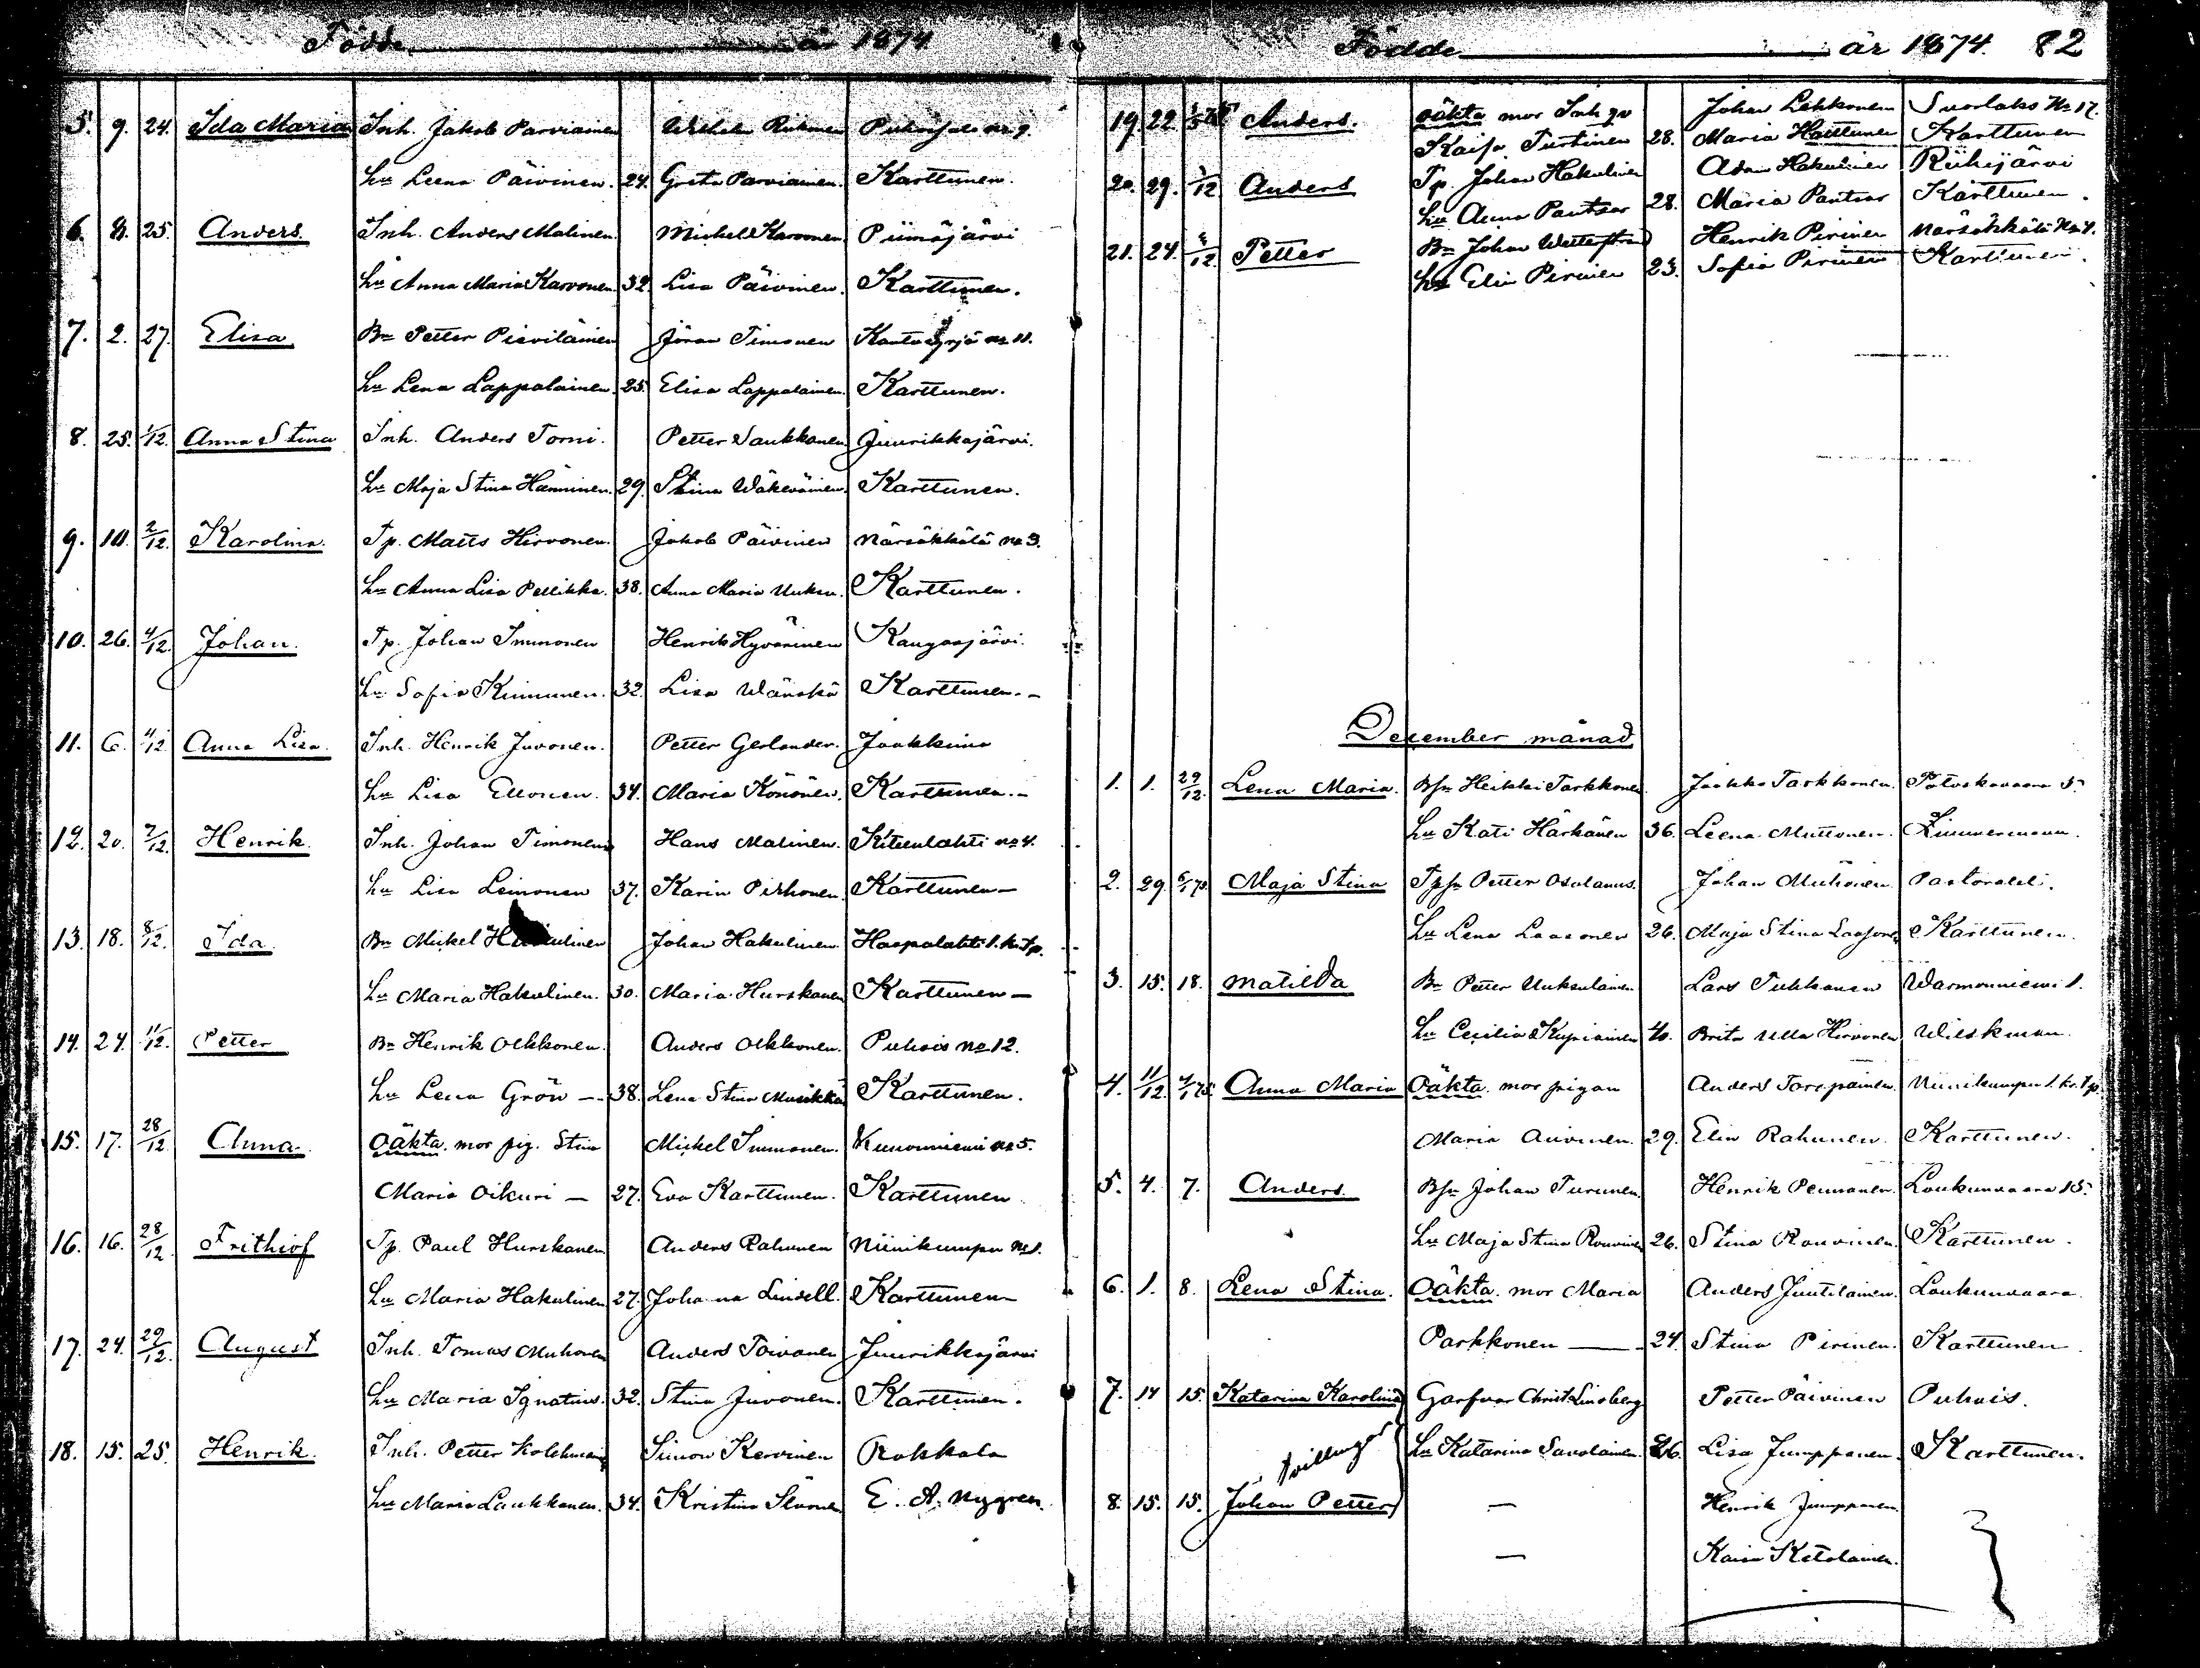 Födde år 1874
5. 9. 24. Ida Maria Inh. Jakob Parviainen Wilhelm
hu Leena Päivinen. 24. Greta Parviainen. Karttunen.
6. 25. Anders. Inh. Anders Malinen. Mickel Karvonen Piimäjärvi
hu Anna Maria Karvonen. 32. Lisa Päivinen. Karttunen.
7. 2. 27. Elisa Bn Petter no 11.
hu Lena Lappalainen. 25. Elisa Lappalainen. Karttunen.
8. 25. 1/12. Anna Stina Inh. Anders Torni. Petter Saukkonen Juurikkajärvi.
hu Maja Stina Hänninen. 29. Stina Wäkeväinen. Karttunen.
9. 10. 2/12. Karolina. Tp. Matts Hirvonen. Jakob Päivinen Närsäkkälä no 3.
hu Anna Lisa Pellikka. 38. Anna Maria Karttunen.
10. 26. 4/12. Johan. Tp. Johan Immonen Henrik Hyvärinen Kangasjärvi.
hu Sofia Kinnunen. 32. Lisa Wänskä Karttunen.-
11. 6. 4/12 Anna Lisa. Inh. Henrik Juvonen. Petter Gerlander. Jaakkima
hu Lisa Ellonen. 34. Maria Könönen. Karttunen.-
12. 20. 7/12. Henrik. Inh. Johan Timonen Hans Malinen. Kiteenlahti no 4.
hu Lisa Leinonen 37. Karin Pirhonen. Karttunen-
13. 18. 8/12. Ida. Bn Mickel Hakulinen Johan Hakulinen. Haapalahti 1. kr. Tp.
hu Maria Hakulinen. 30. Maria Hurskanen Karttunen-
14. 24. 11/12. Petter Bn Henrik Olkkonen. Anders Olkkonen. Puhois no 12.
hu Lena Grön - 38. Lena Stina Musikka Karttunen.
15. 17. 28/12 Anna. Oäkta. mor pig. Stina Mickel Immonen. Kunonniemi no 5.
Maria Oikuri - 27. Eva Karttunen. Karttunen
16. 16. 28/12. Frithiof Tp. Paul Hurskanen Anders Rahunen Niinikumpu No 1.
hu Maria Hakulinen 27. Johanna Lindell. Karttunen-
17. 24. 29/12. August Inh. Tomas Muhonen Anders Toivanen Juurikkajärvi
hu Maria Ignatius. 32. Stina Juvonen. Karttunen.
18. 15. 25. Henrik. Inh. Petter Kolehmainen Simon Kervinen Rokkala
hu Maria Laukkanen. 34. Kristina E. A. Nygren.
Födde år 1874. 82
19. 22. Anders. Oäkta mor Inh. Johan Lekkonen Suorlaks No 17.
Kaisa Turtinen 28. Maria Karttunen
20. 29. 1/12 Anders Tp. Johan Hakulinen Adam Hakulinen Riihijärvi
hu Anna Pantsar 28. Maria Pantsar Karttunen.
21. 24. 4/12. Petter Bn Johan Henrik Pirinen Närsäkkälä No 4.
hu Elin Pirinen 23. Sofia Pirinen Karttunen.
December månad
1. 1. 29/12. Lena Maria. Bsn Heikki Tarkkonen Jaakko Tarkkonen. Potoskavaara 5.
hu Kati Härkänen 36. Leena Muttonen. Zimmermann.
2. 29. 6/1 75. Maja Stina Petter Osolanus. Johan Muhonen. Pastorat
hu Lena Laasonen 26. Maja Stina Laasonen Karttunen.
3. 15. 18. Matilda Bn Petter Uuksulainen. Lars Tukkanen Warmonniemi 1.
hu Cecilia 40. Brita Ulla Hirvonen Wileskman.
4. 11/12 Anna Maria Oäkta. mor pigan Anders Torspainen. Niinikumpu 1. kr. Tp.
Maria Aivinen. 29. Elin Rahunen. Karttunen.
5. 4. 7. Anders. Bsn Johan Turunen. Henrik Pennanen. Loukunvaara 15.
hu Maja Stina Rouvinen 26. Stina Rouvinen. Karttunen.
6. 1. 8. Lena Stina. Oäkta. mor Maria Anders Juutilainen. Loukunvaara.
Parkkonen - 24. Stina Pirinen. Karttunen.
7. 14 15. Katarina Karolina Garfvar Christ Lindberg Petter Päivinen Puhois.
hu Katarina Savolainen. 26. Lisa Jumppanen. Karttunen.
tvillingar
8. 15. 15. Johan Petter - Henrik Jumppanen.
- Kaisa Ketolainen.